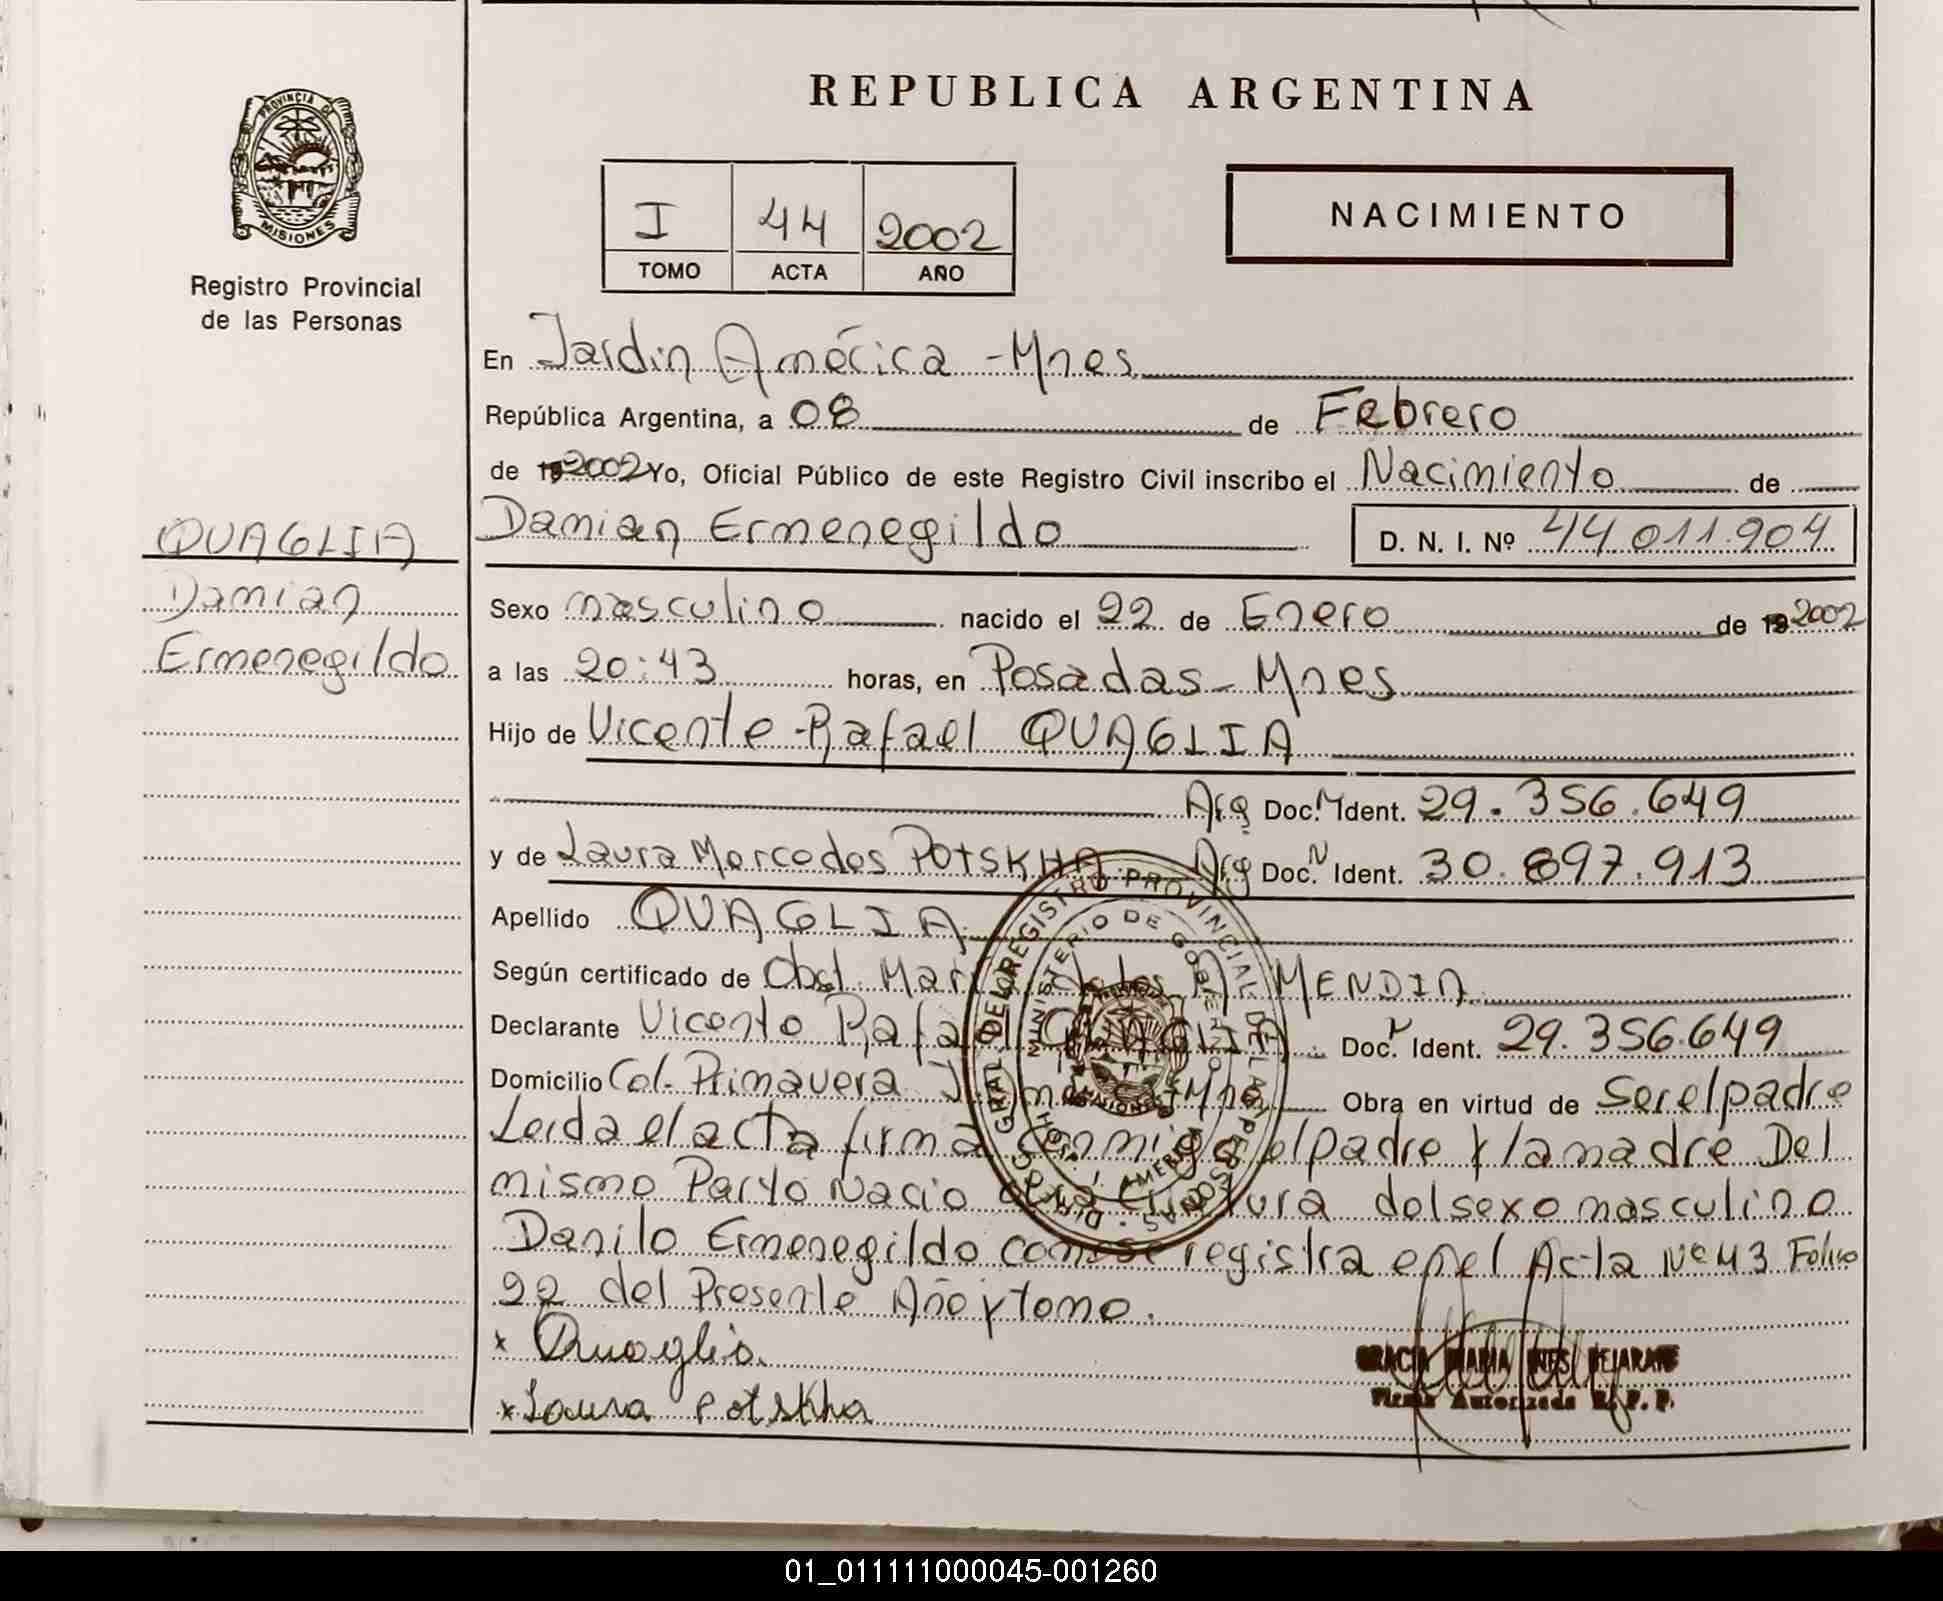 REPUBLICA ARGENTINA
PROVINCIA DE
MISIONES
Registro Provincial
de las Personas
I 44 2002
TOMO ACTA AÑO
NACIMIENTO
En Jardin América - Mnes
República Argentina, a 08 de Febrero
de 19 2002 Yo, Oficial Público de este Registro Civil inscribo el Nacimiento de
Damian Ermenegildo D. N. I. Nº 44 011.904
QUAGLIA
Damian
Ermenegildo
Sexo masculino nacido el 22 de Enero de 19 2002
a las 20:43 horas, en Posadas - Mnes
Hijo de Vicente Rafael QUAGLIA
Arg Doc. N Ident. 29.356.649
y de Laura Mercedes POTSKHA Arg Doc. N Ident. 30.897.913
Apellido QUAGLIA
Según certificado de Obst. A. MENDIA
Declarante Vicente Rafael QUAGLIA Doc. N Ident. 29.356.649
Domicilio Col. Primavera Mnes Obra en virtud de Ser el padre
Leida el acta firma conmigo el padre y la madre Del
mismo Parto Nacio otra criatura del sexo masculino
Danilo Ermenegildo como se registra en el Acta Nº 43 Folio
22 del Presente Año y tomo.
x Quaglia
x Laura Potskha
GRACIA MARIA INES BEJARANO
Firma Autorizada R. P. P.
DIREC. GRAL. DEL REGISTRO PROVINCIAL DE LAS PERSONAS
MINISTERIO DE GOBIERNO
MISIONES
J. AMERICA
01_011111000045-001260